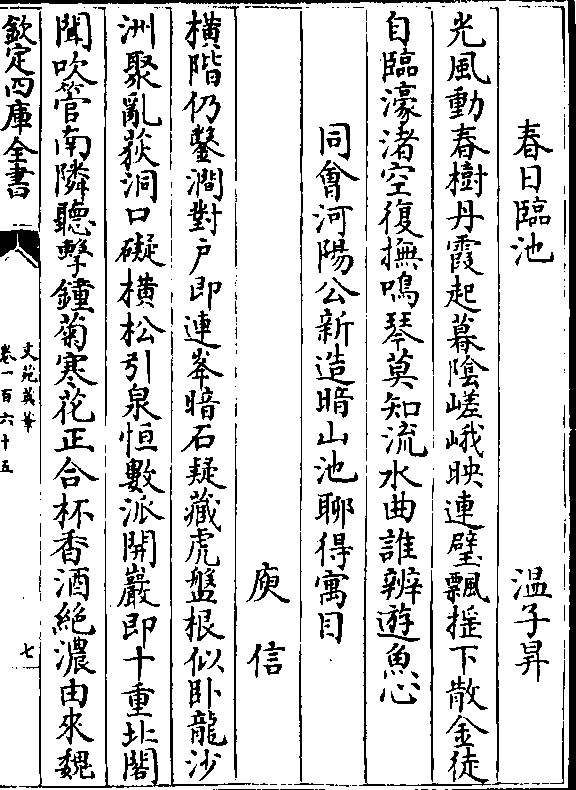 春日臨池　温子昇
光風動春樹丹霞起暮陰嵯峨映連璧飄揺下散金徒
自臨濠渚空復撫鳴琴莫知流水曲誰辨遊魚心
同會河陽公新造暗山池聊得寓目
庾信
横階仍鑿澗對户即連峯暗石疑藏虎盤根似卧龍沙
洲聚亂荻洞口礙横松引泉恒數派開巖即十重北閣
聞吹管南隣聽擊鐘菊寒花正合杯香酒絶濃由來魏
欽定四庫全書
文苑英華
卷一百六十五
七